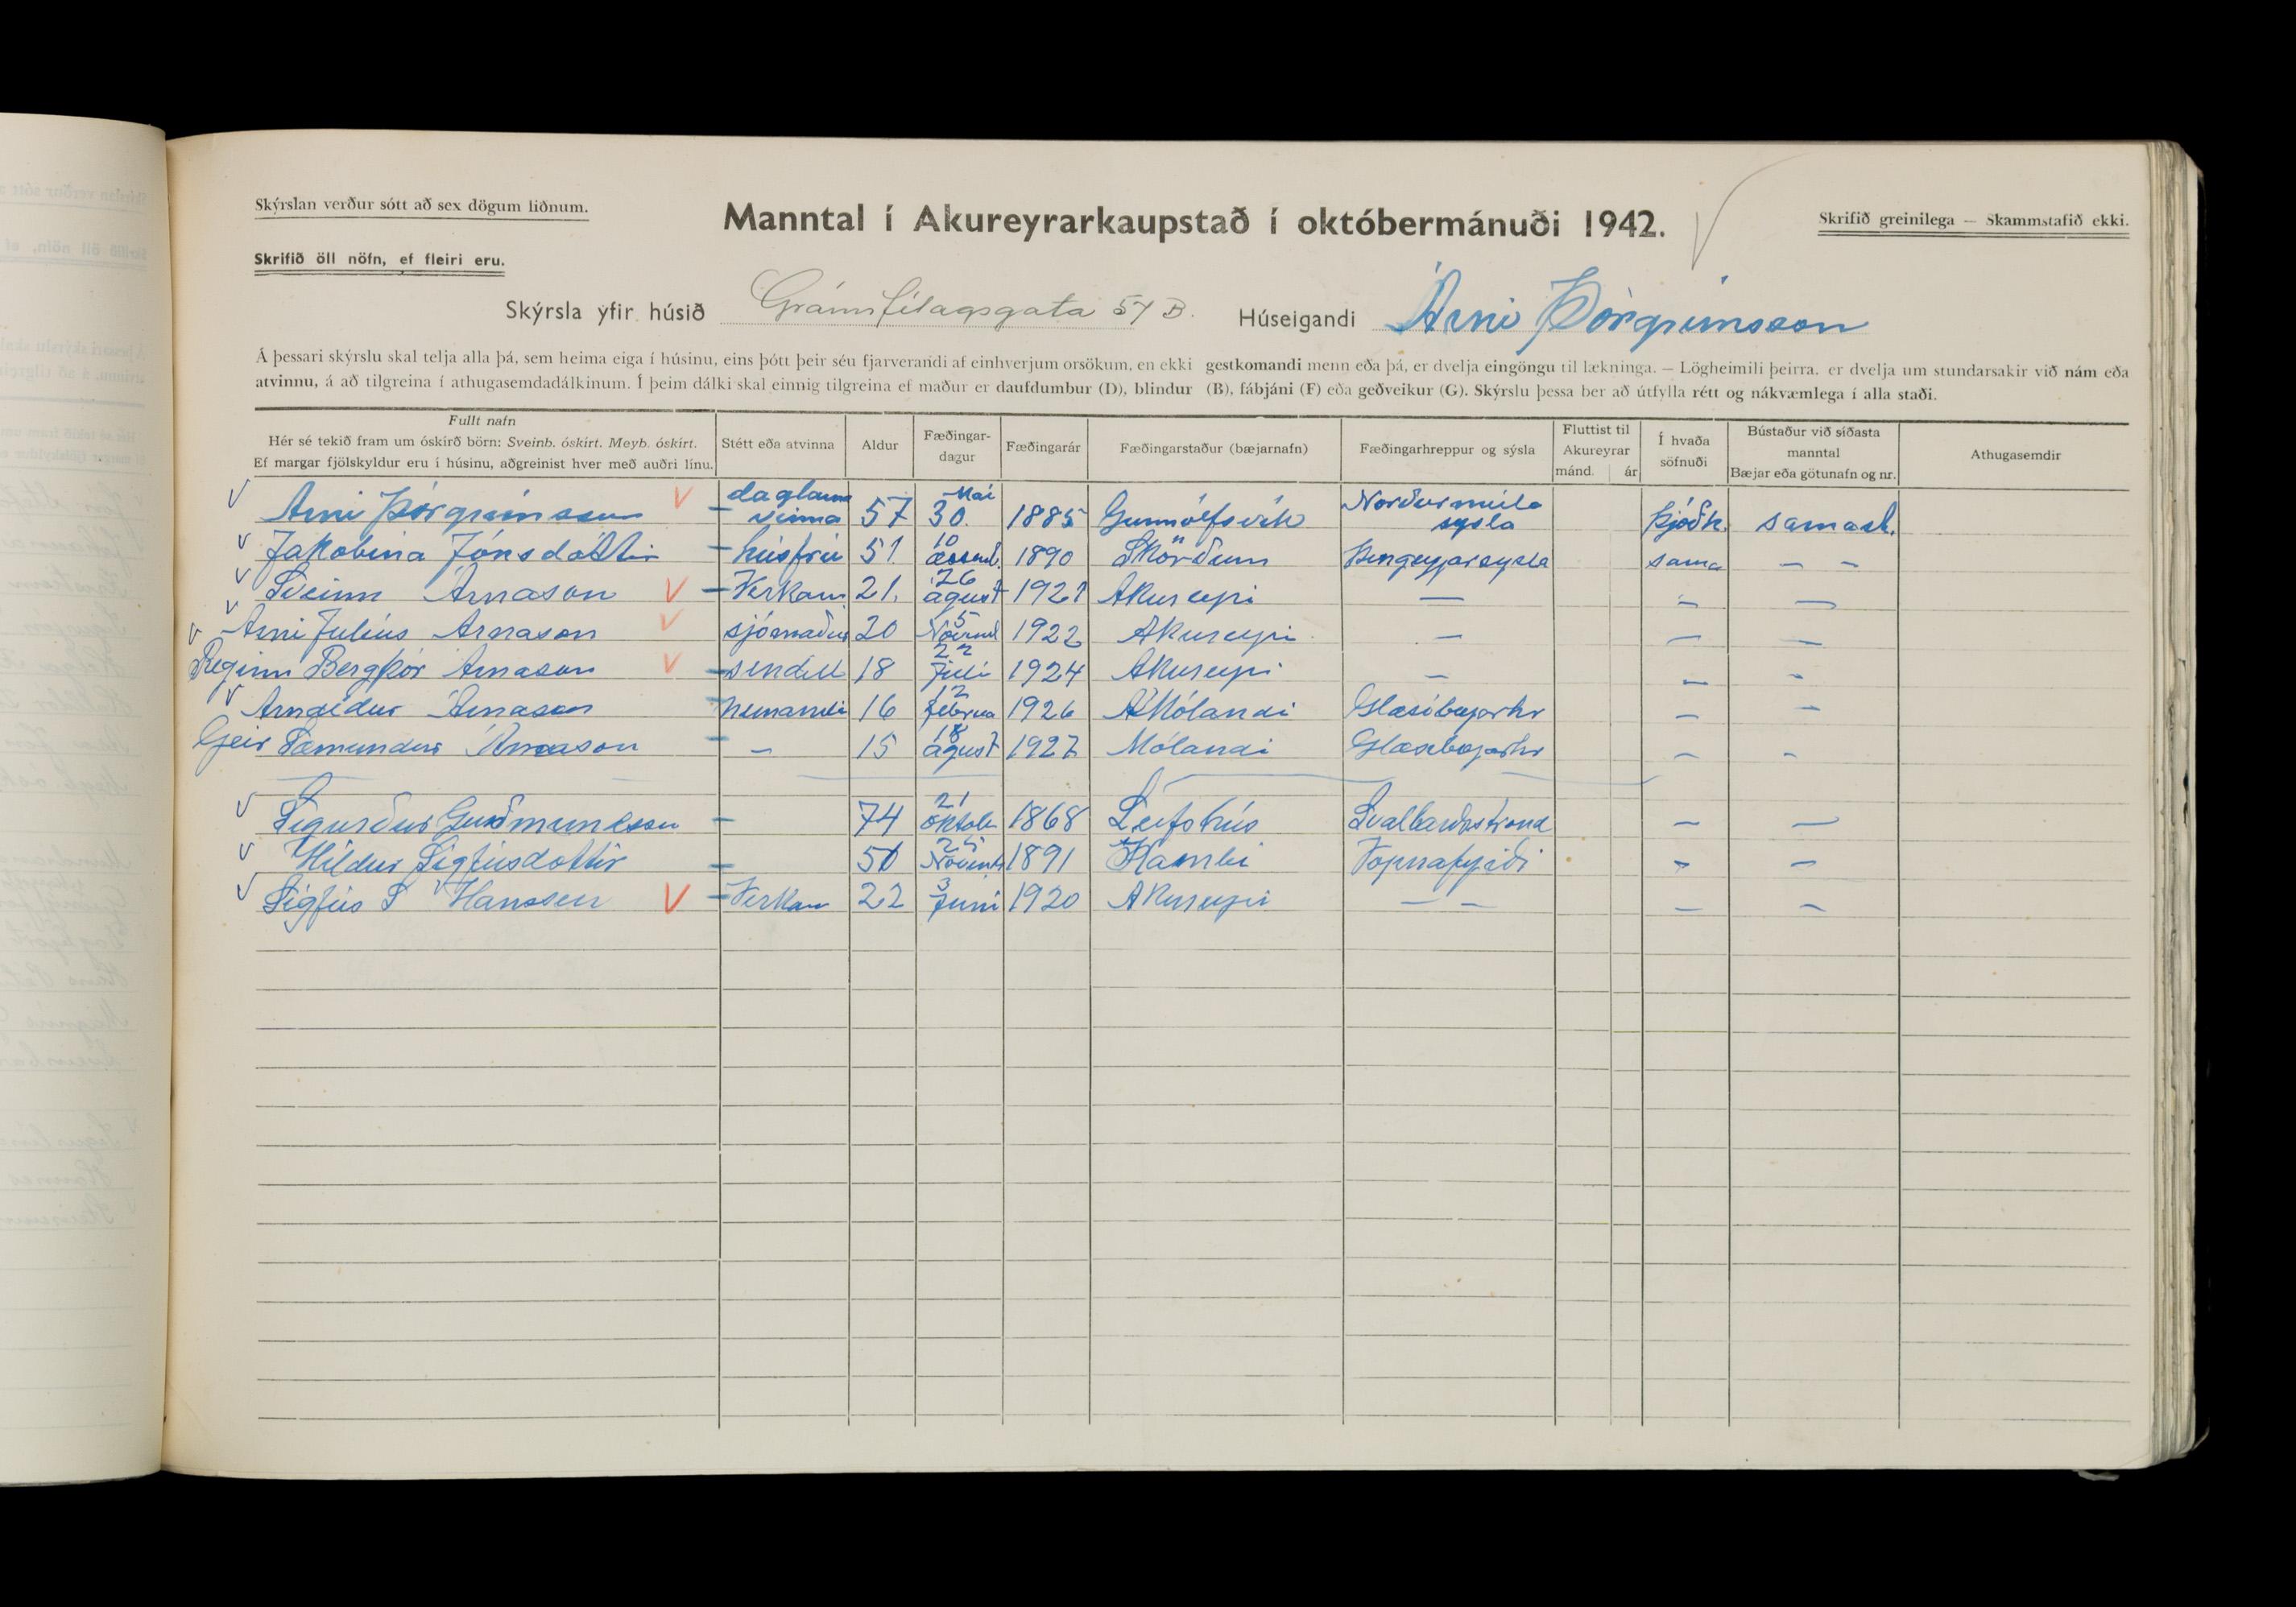 Skýrslan verður sótt að sex dögum liðnum.
Manntal í Akureyrarkaupstað í októbermánuði 1942.
Skrifið greinilega — Skammstafið ekki.
Skrifið öll nöfn, ef fleiri eru.
Skýrsla yfir húsið Gránufélagsgata 57 B. Húseigandi Árni Þórgrímsson
Á þessari skýrslu skal telja alla þá, sem heima eiga í húsinu, eins þótt þeir séu fjarverandi af einhverjum orsökum, en ekki gestkomandi menn eða þá, er dvelja eingöngu til lækninga. — Lögheimili þeirra, er dvelja um stundarsakir við nám eða
atvinnu, á að tilgreina í athugasemdadálkinum. Í þeim dálki skal einnig tilgreina ef maður er daufdumbur (D), blindur (B), fábjáni (F) eða geðveikur (G). Skýrslu þessa ber að útfylla rétt og nákvæmlega í alla staði.
Fullt nafn
Hér sé tekið fram um óskírð börn: Sveinb. óskírt. Meyb. óskírt.
Ef margar fjölskyldur eru í húsinu, aðgreinist hver með auðri línu.
Stétt eða atvinna
Aldur
Fæðingar-
dagur
Fæðingarár
Fæðingarstaður (bæjarnafn)
Fæðingarhreppur og sýsla
Fluttist til
Akureyrar
mánd. ár
Í hvaða
söfnuði
Bústaður við síðasta
manntal
Bæjar eða götunafn og nr.
Athugasemdir
Árni Þórgrímsson daglauna vinna 57 30. Maí 1885 Gunnólfsvík Norðurmúla sysla Þjóðk. samast.
Jakobína Jónsdóttir húsfrú 51. 10 desemb. 1890 Skörðum Þingeyjarsysla sama — —
Sveinn Árnason Verkam. 21. 26 ágúst 1921 Akureyri — — —
Árni Júlíus Árnason sjómaður 20 5 Nóvemb 1922 Akureyri — — —
Reginn Bergþór Árnason sendill 18 22 Júlí 1924 Akureyri — — —
Arngrímur Árnason nemandi 16 12 febrúa 1926 Mólandi Glæsibæjarhr — —
Geir Sæmundur Árnason — 15 18 ágúst 1927 Mólandi Glæsibæjarhr — —
Sigurður Guðmundsson 74 21 októb 1868 Leifshús Svalbarðsströnd — —
Hildur Sigfúsdóttir 50 25 Nóvemb 1891 Kambi Vopnafyrði — —
Sigfús S Hanssen Verkam 22 3 Júní 1920 Akureyri — — — —